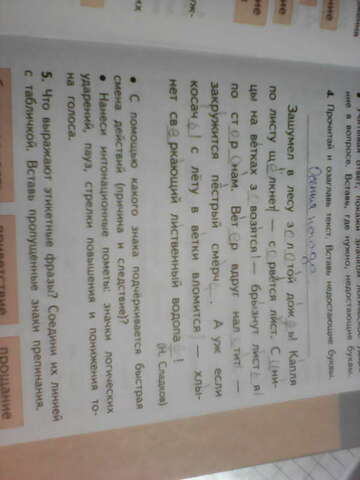 4. Прочитай и озаглавь текст. Вставь недостающие буквы.
Осенняя погода
Зашумел в лесу золотой дождь! Капля
по листу щёлкнет — сорвётся лист. Сини-
цы на ветках завозятся — брызнут листья
по сторонам. Ветер вдруг налетит —
закружится пёстрый смерч. А уж если
косач с лёту в ветки вломится — хлы-
нет сверкающий лиственный водопад!
(Н. Сладков)
• С помощью какого знака подчёркивается быстрая
смена действий (причина и следствие)?
• Нанеси интонационные пометы: значки логических
ударений, пауз, стрелки повышения и понижения то-
на голоса.
5. Что выражают этикетные фразы? Соедини их линией
с табличкой. Вставь пропущенные знаки препинания.
прощание